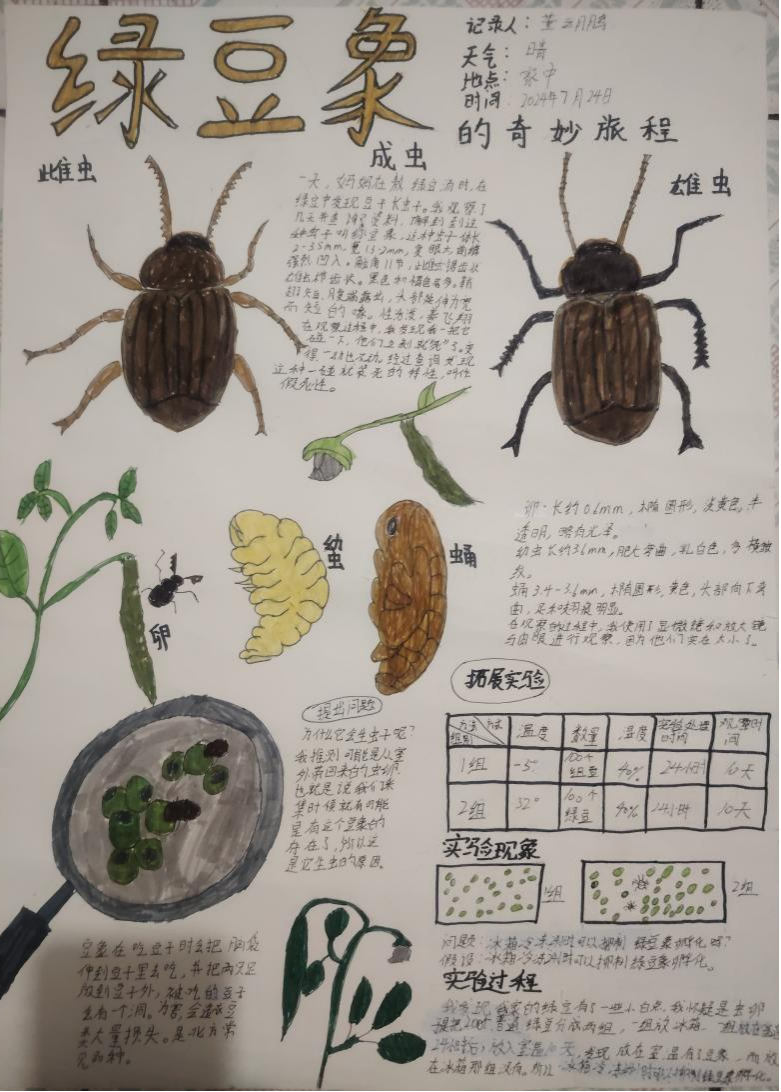 绿豆象
的奇妙旅程
记录人：董
天气：晴
地点：家中
时间：2024年7月24日
雌虫
成虫
雄虫
一天，妈妈在熬绿豆汤时，在
绿豆中发现豆子长虫子。我观察了
几天并查阅资料，了解到
种虫子叫绿豆象，这种虫子体长
2-3.5mm，宽1.3-2mm，复眼大
凹入。触角11节，雌虫锯齿状
雄虫栉齿状。
而短的喙。善飞翔
在观察过程中，我发现我一把它
碰一下，他们立刻就“死”了。变
得一动也不动。经过查阅发现
这种一碰就装死的特性，叫作
假死性。
幼
蛹
卵
卵：长约0.6mm，椭圆形，淡黄色，半
透明，略有光泽。
幼虫长约3.6mm，肥大弯曲，乳白色，多横皱
纹。
蛹3.4-3.6mm，椭圆形，黄色，头部向下弯
曲，足和翅痕明显。
在观察的过程中，我使用了显微镜和放大镜
与肉眼进行观察，因为他们实在太小了。
提出问题
为什么它会生虫子呢？
我推测可能是从室
外带回来的虫卵
也就是说我们采
集时候就有可能
是有这个豆象的
存在了，所以这
是它生虫的原因。
拓展实验
方法 组别 温度 数量 湿度 实验处理时间 观察时间
1组 -5° 100个绿豆 40% 24小时 10天
2组 32° 100个绿豆 40% 24小时 10天
实验现象
1组
2组
问题：冰箱冷冻法可以抑制绿豆象孵化吗？
假设：冰箱冷冻法可以抑制绿豆象孵化。
实验过程
我发现我家的绿豆有了一些小白点，我怀疑是虫卵
我把200个普通绿豆分成两组，一组放冰箱，一组放在室温
24小时后，放入室温10天，发现放在室温有了豆象，而放
在冰箱那组没有。所以冰箱冷冻法可以抑制绿豆象孵化。
豆象在吃豆子时会把胸部
伸到豆子里去吃，并把两只足
放到豆子外，被吃的豆子
会有个洞。为害会造成豆
类大量损失。是北方常
见的种。